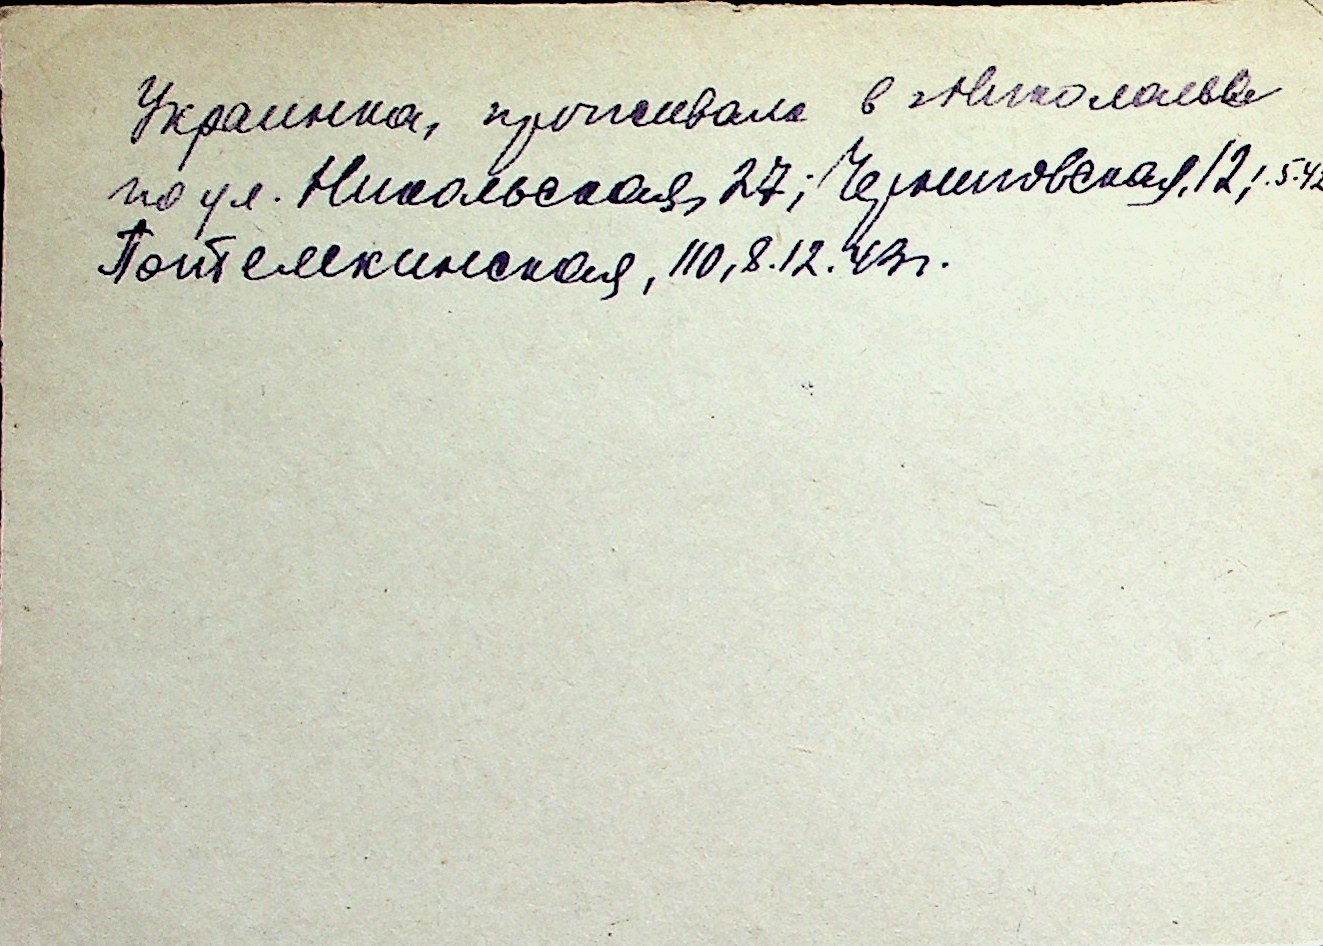 Украинка, проживала в г. Николаеве
по ул. Никольская, 27; Черниговская, 12, 1.5.42
Потемкинская, 110, 8.12.43г.